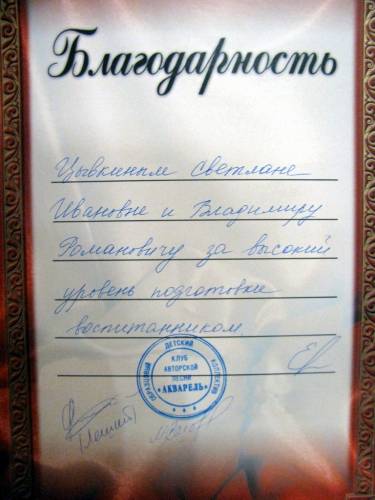 Благодарность
Цывкиным Светлане
Ивановне и Владимиру
Романовичу за высокий
уровень подготовки
воспитанником
ДЕТСКИЙ
КОЛЛЕКТИВ
КЛУБ
АВТОРСКОЙ
ПЕСНИ
«АКВАРЕЛЬ»